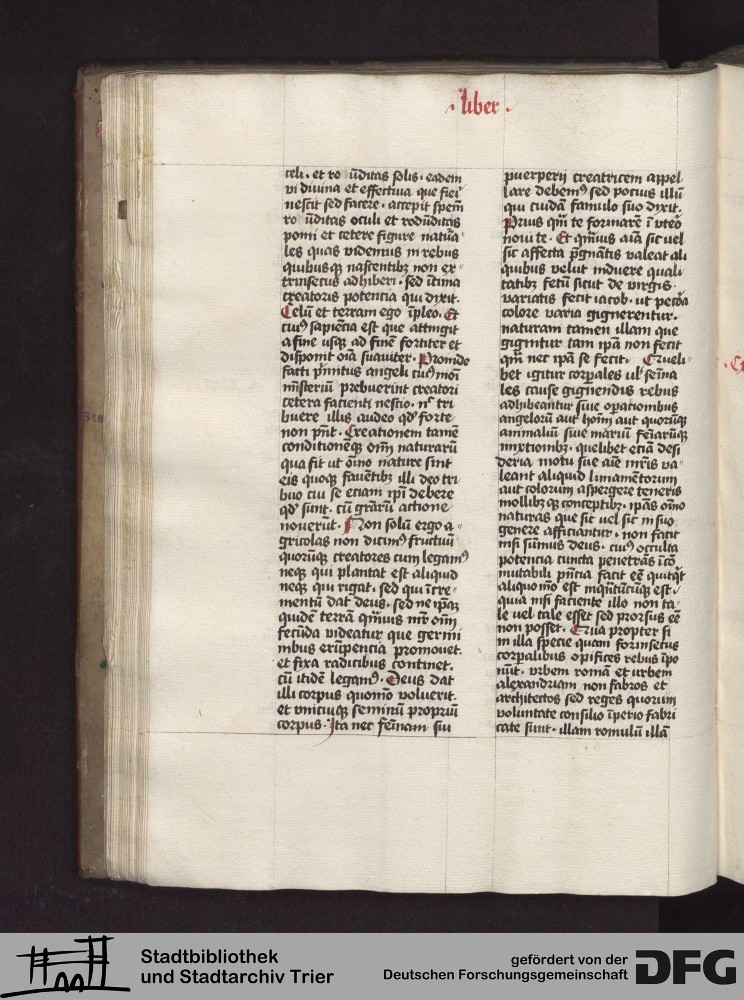 · liber ·
celi · et ro ūditas solis · eadem
vi diuina et effectiua que fieri
nescit sed facere · accepit speciē
ro ūditas oculi et rodūditas
pomi et cetere figure natura
les quas videmus in rebus
quibusq nascentibꝫ non ex
trinsecus adhiberi · sed ītima
creatoris potencia qui dyxit ·
Celū et terram ego īpleo · Et
cuiꝰ sapiēcia est que attingit
a fine usqꝫ ad finē fortiter et
disponit oīa suauiter · Proinde
facti pͥmitus angeli cuiꝰmōi
mīsteriū prebuerint creatori
cetera facienti nescio · nͨ tri
buere illis audeo qd̓ forte
non pn̄t · Creationem tamē
conditionēqꝫ om̄ naturarū
qua fit ut oīno nature sint
eis quoqꝫ fauētibꝫ illi deo tri
buo cui se eciam ip̄i debere
qd̓ sunt · cū grārū actione
nouerūt · Non solū ergo a
gricolas non dicimꝰ fructuū
quorūqꝫ creatores cum legamꝰ
neqꝫ qui plantat est aliquid
neqꝫ qui rigat · sed qui īcre
mentū dat deus · sed ne ip̄aꝫ
quidē terrā qͣmuis mr̄ om̄
fecūda videatur que germi
nibus erūpencia promouet ·
et fixa radicibus continet ·
cū itidē legamꝰ · Deus dat
illi corpus quomō voluerit ·
et vnicuiqꝫ seminū propriū
corpus · Ita nec feīnam sui
puerperij creatricem appel
lare debemꝰ sed pocius illū
qui cuidā famulo suo dyxit ·
Prius qm̄ te formarē ī vteō
noui te · Et qͣmuis aīa sic uel
sic affecta pͬgnātis valeat ali
quibus velut induere quali
tatibꝫ fetū sicut de virgis
variatis fecit iacob · ut pecōa
colore varia gignerentur ·
naturam tamen illam que
gignitur tam ip̄a non fecit
qm̄ nec ip̄a se fecit · Queli
bet igitur corꝑales ul̓ seīna
les cause gignendis rebus
adhibeantur siue oꝑationibus
angelorū aut homī aut quorūqꝫ
animaliū siue mariū feīarūqꝫ
mixtionibꝫ · quelibet eciā desi
deria motu sue aīe mr̄is va
leant aliquid liniamētorum
aut colorum aspergere teneris
mollibꝫqꝫ conceptibꝫ · ip̄as oīno
naturas que sic vel sic in suo
genere afficiantur · non facit
nisi sūmus deus · cuiꝰ occulta
potencia cuncta penetrās īcō
mutabili pn̄cia facit eē quitqͥt
aliquo mō est inqͣntūcūqꝫ est ·
quia nisi faciente illo non ta
le uel tale esset sed prorsus eē
non posset · Qua propter si
in illa specie quam forinsecus
corpalibus opifices rebus īpo
nūt · vrbem romā et urbem
alexandriam non fabros et
architectos sed reges quorum
voluntate consilio īperio fabri
cate sunt · illam romulū illā
Stadtbibliothek
und Stadtarchiv Trier
gefördert von der
Deutschen Forschungsgemeinschaft
DFG